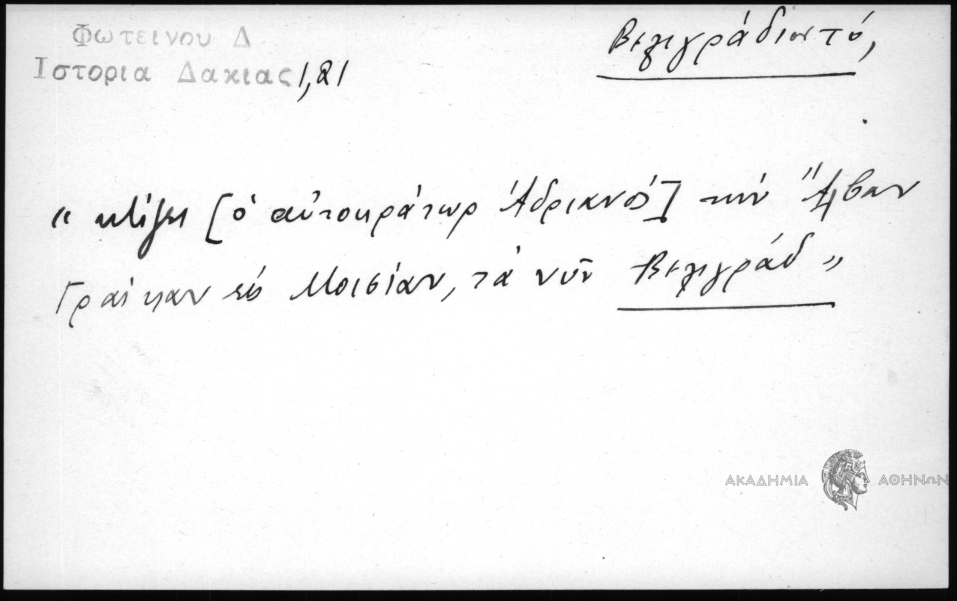 Φωτεινου Δ
Ιστορια Δακιας 1,21
Βελιγράδιον τό,
" κτίζει [ὁ αὐτοκράτωρ Ἀδριανὸς] τὴν Ἄλβαν
Γραίκαν εἰς Μοισίαν, τὰ νῦν Βελιγράδ "
ΑΚΑΔΗΜΙΑ ΑΘΗΝΩΝ